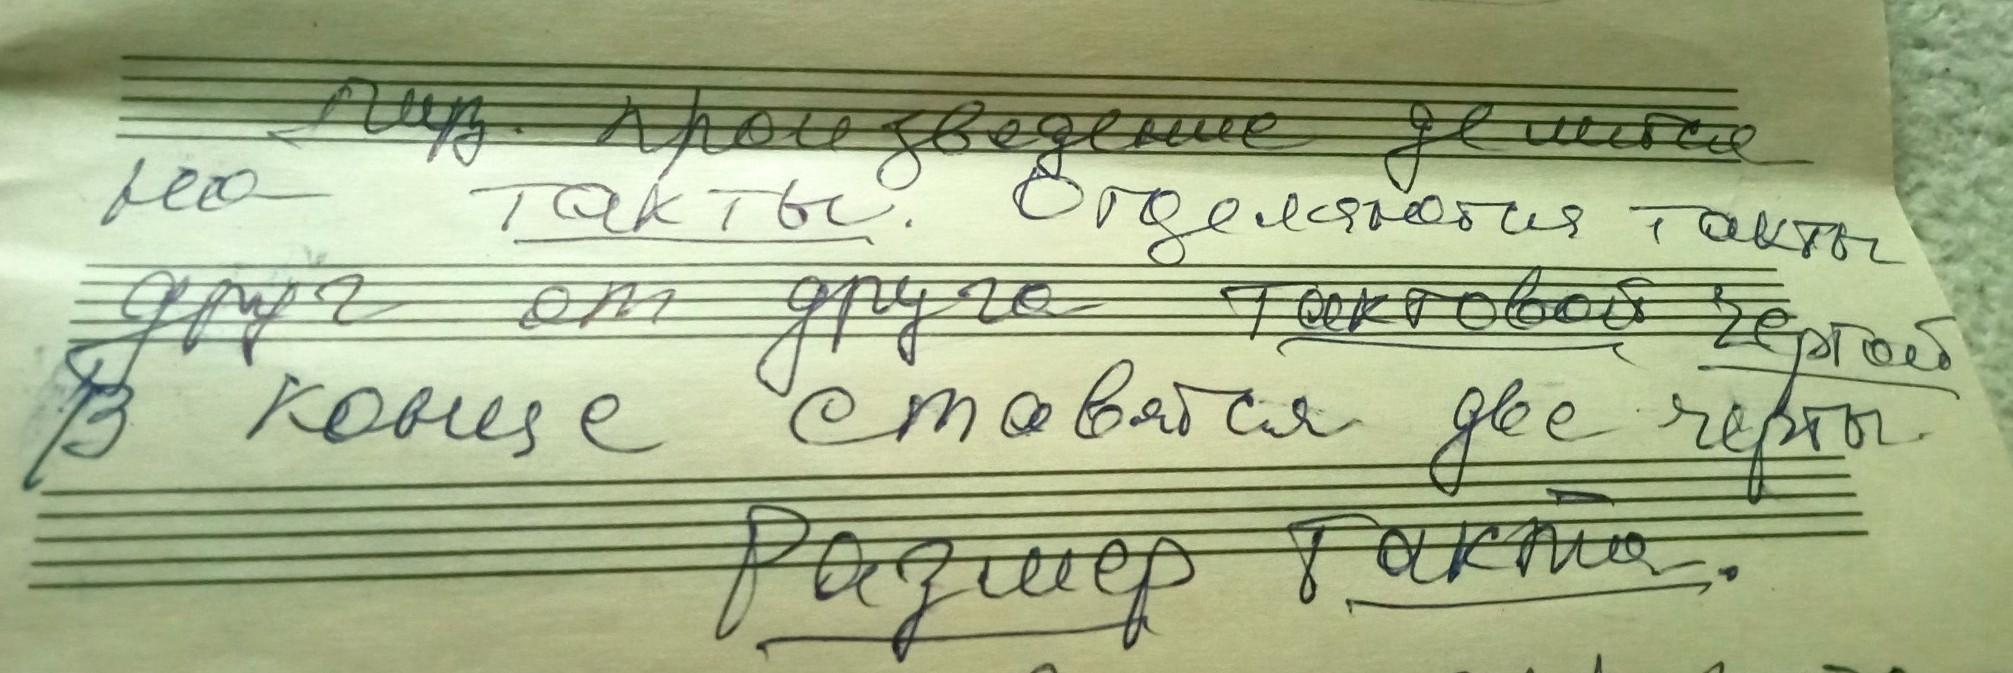 Муз. произведение делится
на такты. Отделяются такты
друг от друга тактовой чертой
В конце ставятся две черты.
Размер такта.